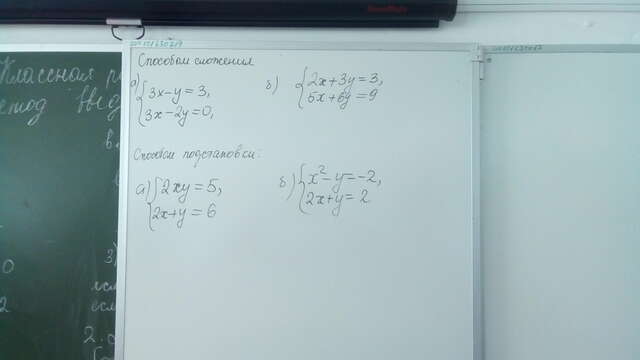 Способом сложения
а) { 3x - y = 3,
3x - 2y = 0,
б) { 2x + 3y = 3,
5x + 6y = 9
Способом подстановки:
а) { 2xy = 5,
2x + y = 6
б) { x² - y = -2,
2x + y = 2
Классная
метод
3)
0
2
2.